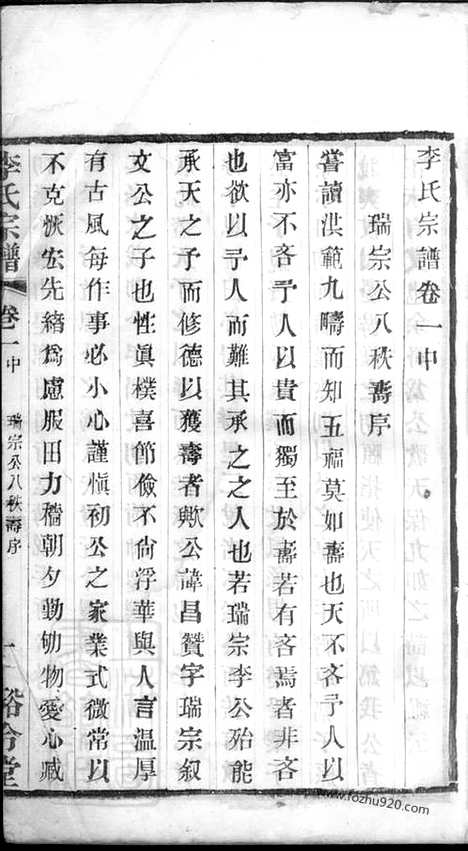 李氏宗譜卷一中
瑞宗公八秩壽序
嘗讀洪範九疇而知五福莫如壽也天不吝予人以
富亦不吝予人以貴而獨至於壽若有吝焉者非吝
也欲以予人而難其承之之人也若瑞宗李公殆能
承天之予而修德以獲壽者歟公諱昌贊字瑞宗叙
文公之子也性眞樸喜節儉不尙浮華與人言溫厚
有古風每作事必小心謹愼初公之家業式微常以
不克恢宏先緒爲慮服田力穡朝夕勤劬物愛心臧
李氏宗譜 卷一中 瑞宗公八秩壽序 一 裕合堂
www.fozhu920.com